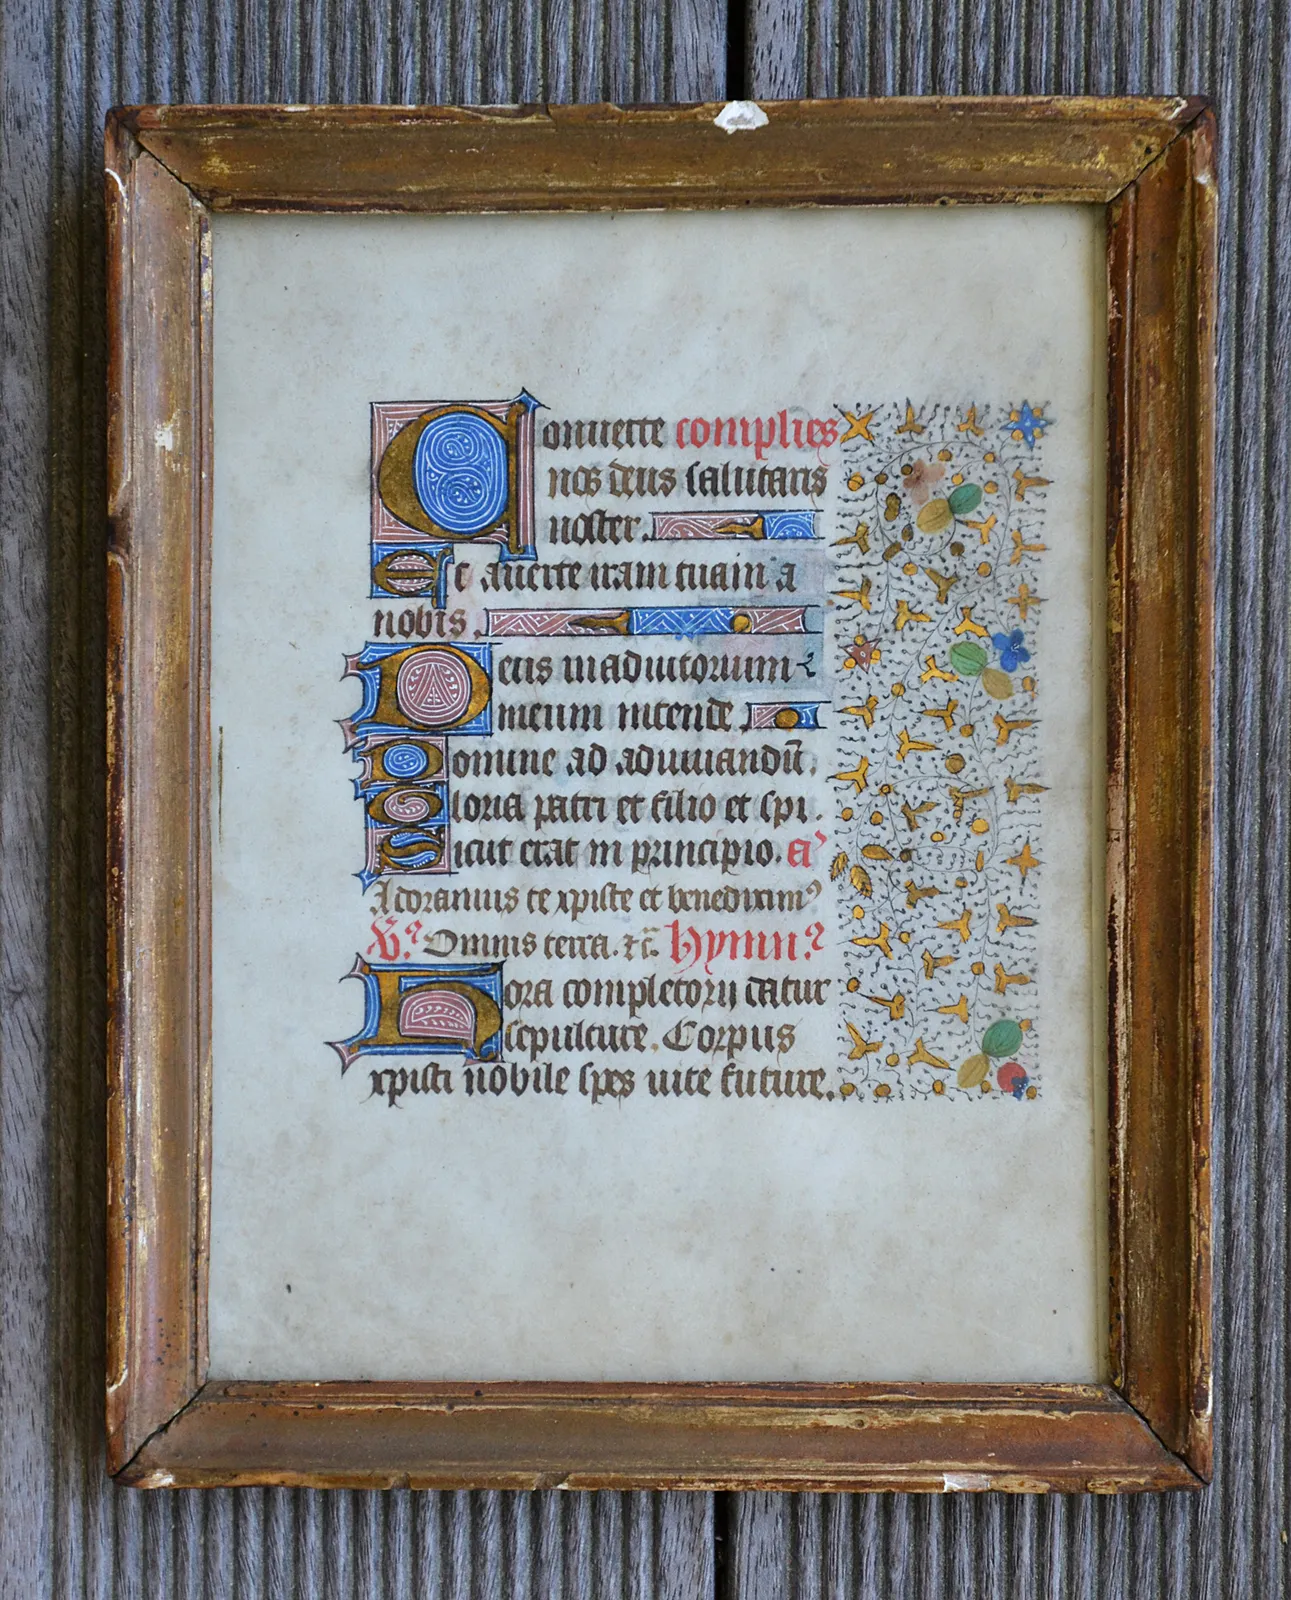 Conuerte complies
nos deus salutaris
noster.
Et auerte iram tuam a
nobis.
Deus in adiutorium
meum intende.
Domine ad adiuuandū.
Gloria patri et filio et spi.
Sicut erat in principio. aꝰ
Adoramus te xpiste et benedicimꝰ
Omnis terra. ⁊c̄. Hymnꝰ
Hora completorij datur
sepulture. Corpus
xpisti nobile spes uite future.